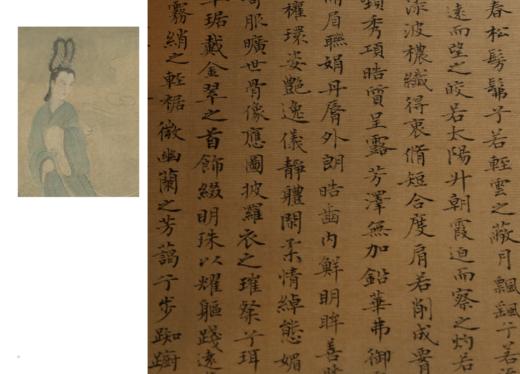 春松髣髴兮若輕雲之蔽月飄颻兮若
遠而望之皎若太陽升朝霞迫而察之灼若
淥波穠纖得衷脩短合度肩若削成
頸秀項皓質呈露芳澤無加鉛華弗御
眉聯娟丹脣外朗皓齒內鮮明眸善
權瓌姿艷逸儀靜體閑柔情綽態媚
服曠世骨像應圖披羅衣之璀粲兮珥
琚戴金翠之首飾綴明珠以耀軀踐遠
霧綃之輕裾微幽蘭之芳藹兮步踟躕